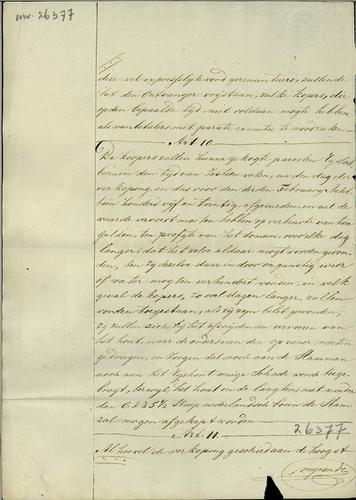 nw. 26377
deze wel expresselyk word gerenuntieerd, zullende
het den Ontvanger vrystaan, zulke kopers, die
op den bepaalde tyd, niet voldaan mogte hebben,
als wanbetalers met parate executie te
Art 10.
De koopers zullen hunne gekogte parceelen
binnen den tyd van zestien weken, na den dag der
verkoping, en dus voor den derden February Acht
tien honderd vyf en twintig, afgesneden, en uit de
waarde vervoerd moeten hebben, op verbeurte van twee
guldens, ten profyte van het domein, voor elke dag
langer, dat het zelve aldaar mogt worden gevon
den, ten zy dezelve daar in door ongunstig weer
of water mogten verhinderd worden, in welk
geval de kopers, zo veel dagen langer, zullen
worden toegestaan, als zy zyn belet geworden,
zy zullen zich by het afsnyden en vervoeren van
het hout, naar de orders van den opziener moeten
gedragen, en zorgen dat noch aan de Stammen
noch aan het hout eenige schade word toege
bragt, terwyl het hout in de laagte niet minder
dan 0.235 Nederlandsch boven de Stam
zal mogen afgekapt worden
Art. 11.
26377
Alhoewel de verkoping geschied aan de hoogst